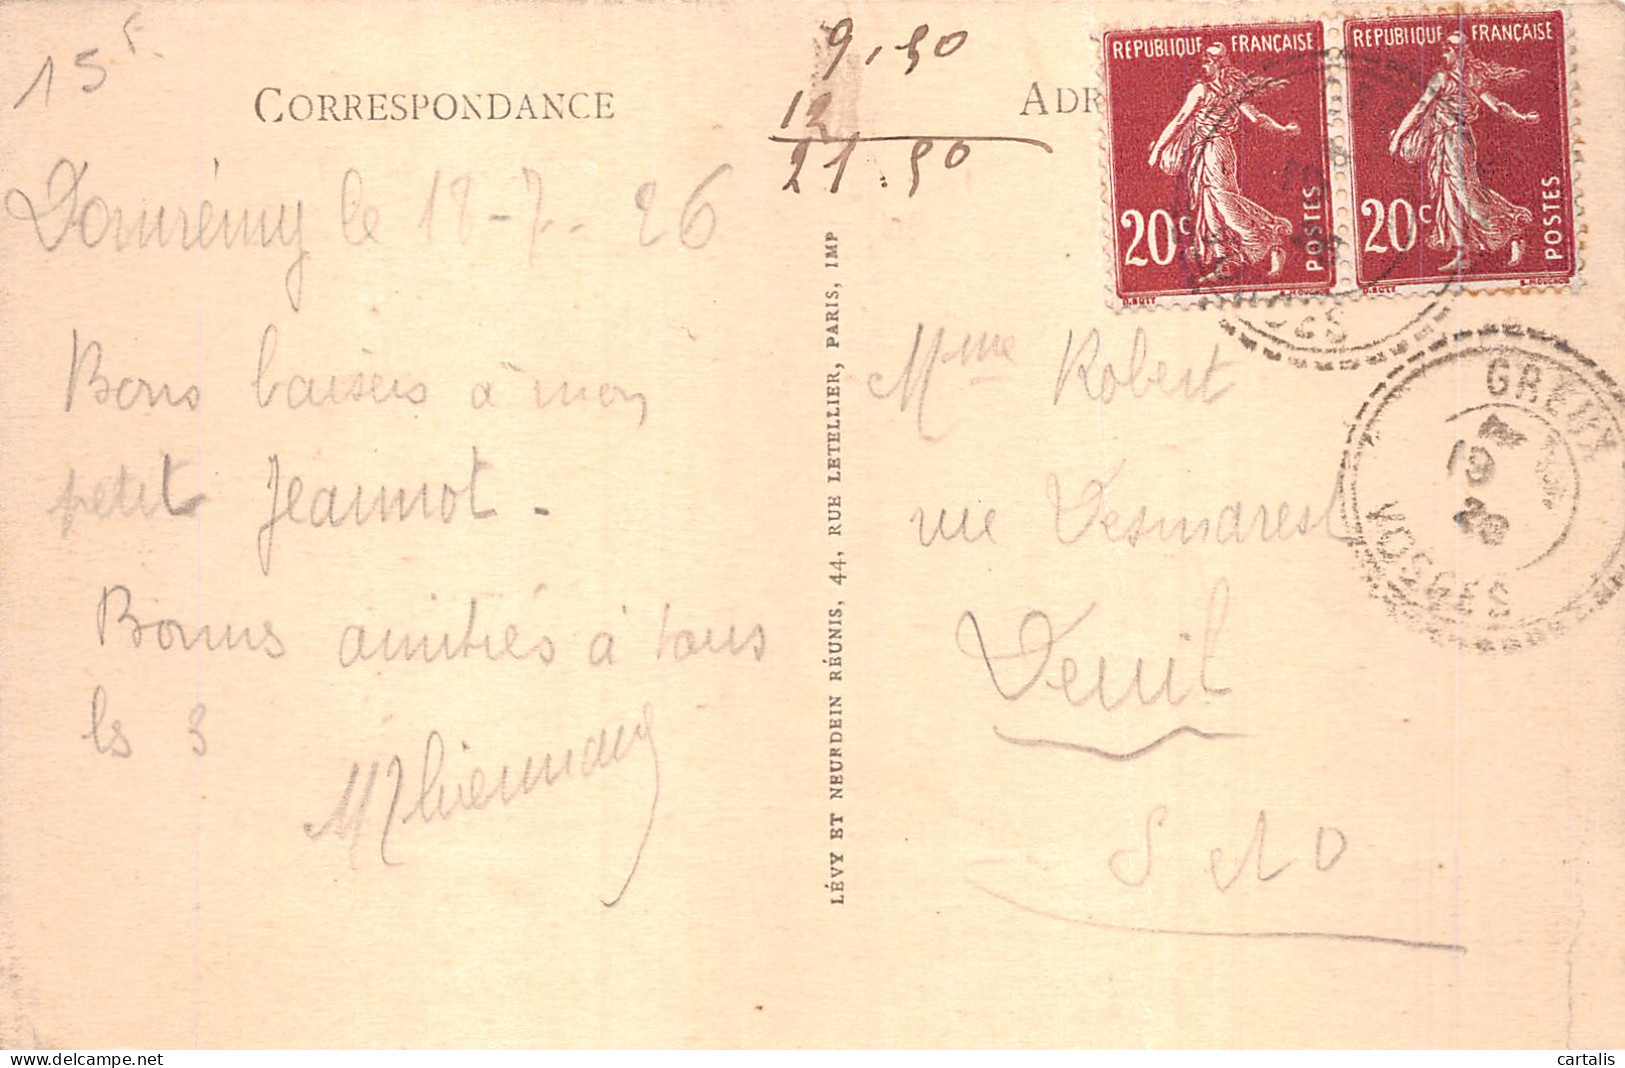 15 F
CORRESPONDANCE
Domrémy le 18-7-26
Bons baisers à mon
petit Jeannot -
Bonnes amitiés à tous
les 3
9,50
12
21.50
LÉVY ET NEURDEIN RÉUNIS, 44, RUE LETELLIER, PARIS, IMP
ADR
RÉPUBLIQUE FRANÇAISE
20c
POSTES
RÉPUBLIQUE FRANÇAISE
20c
POSTES
GREUX
19
VOSGES
Mme Robert
rue Desmarest
Deuil
S et O
cartalis